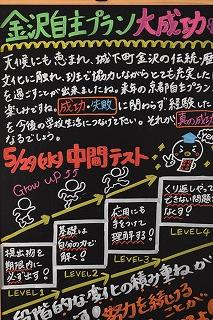 金沢自主プラン大成功
天候にも恵まれ、城下町金沢の伝統・歴
文化に触れ、班で協力しながらとても充実した
を過ごすことが出来ましたね。来年の京都自主プラン
楽しみですね。成功・失敗に関わらず経験した
を今後の学校生活につなげたい。それが真の成功
なるでしょう。
5/29(火)中間テスト
Grow up
提出物を
期限内に
必ず出す?
LEVEL1
基礎は
自分の力で
解く?
LEVEL2
応用にも
手をつけて
理解する?
LEVEL3
くり返しやって
できない問題を
なくす?
LEVEL4
段階的な変化の積み重ねが
努力を続けること